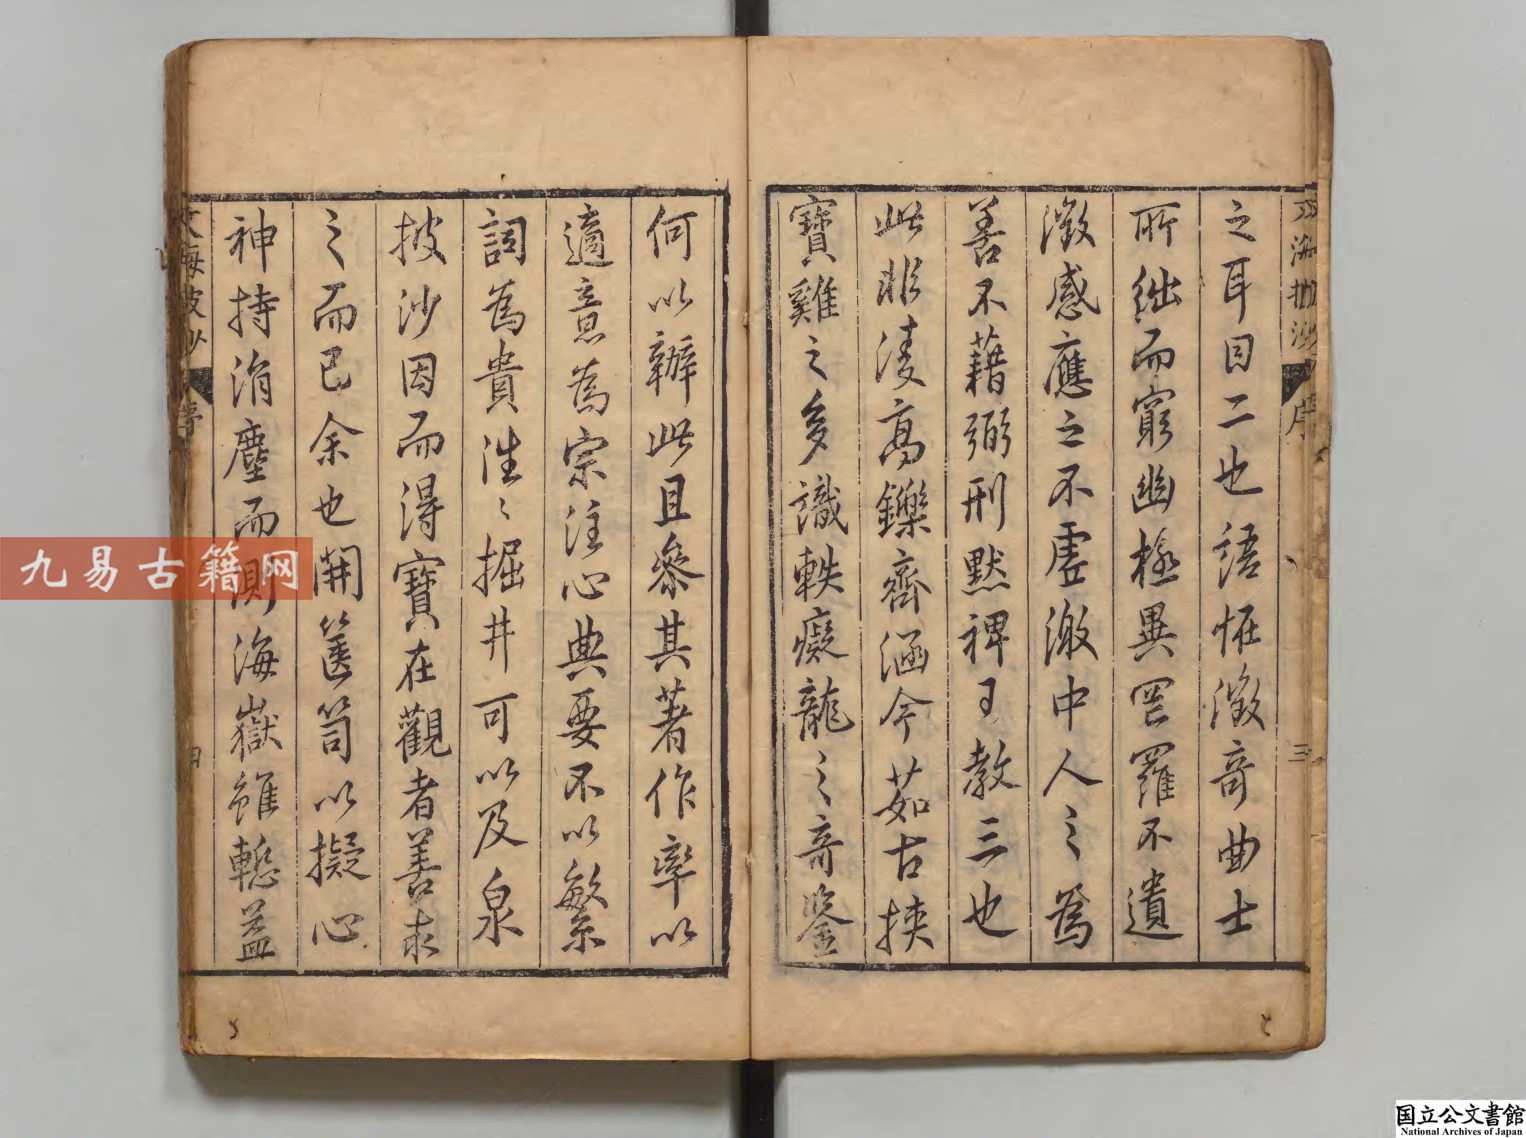 之耳目二也語恠徵奇曲士
所絀而窮幽極異罟羅不遺
徵感應之不虛激中人之為
善不藉弼刑默裨王教三也
此非淩高鑠齊涵今茹古挾
寶雞之多識軼癡龍之奇鑒
文海披沙
序
三
何以辦此且參其著作率以
適意為宗注心典要不以繁
詞為貴洼〻掘井可以及泉
披沙因而得寶在觀者善求
之而已余也開篋笥以擬心
神持涓塵而則海嶽雖慙益
文海披沙
序
四
九易古籍网
国立公文書館
National Archives of Japan